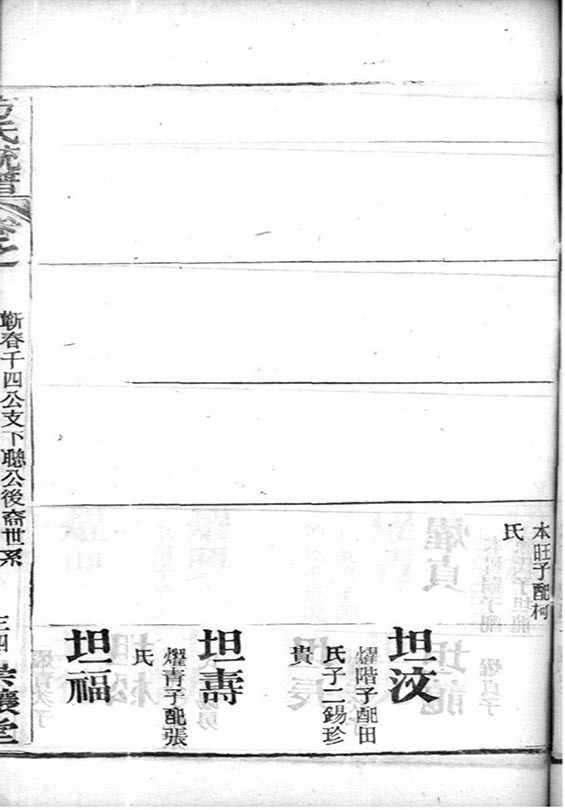 本旺子配柯
氏
坦汶
燿階子配田
氏子二錫珍
貴
坦壽
燿青子配張
氏
坦福
方氏統譜
卷之一
蘄春千四公支下聯公後裔世系
三四